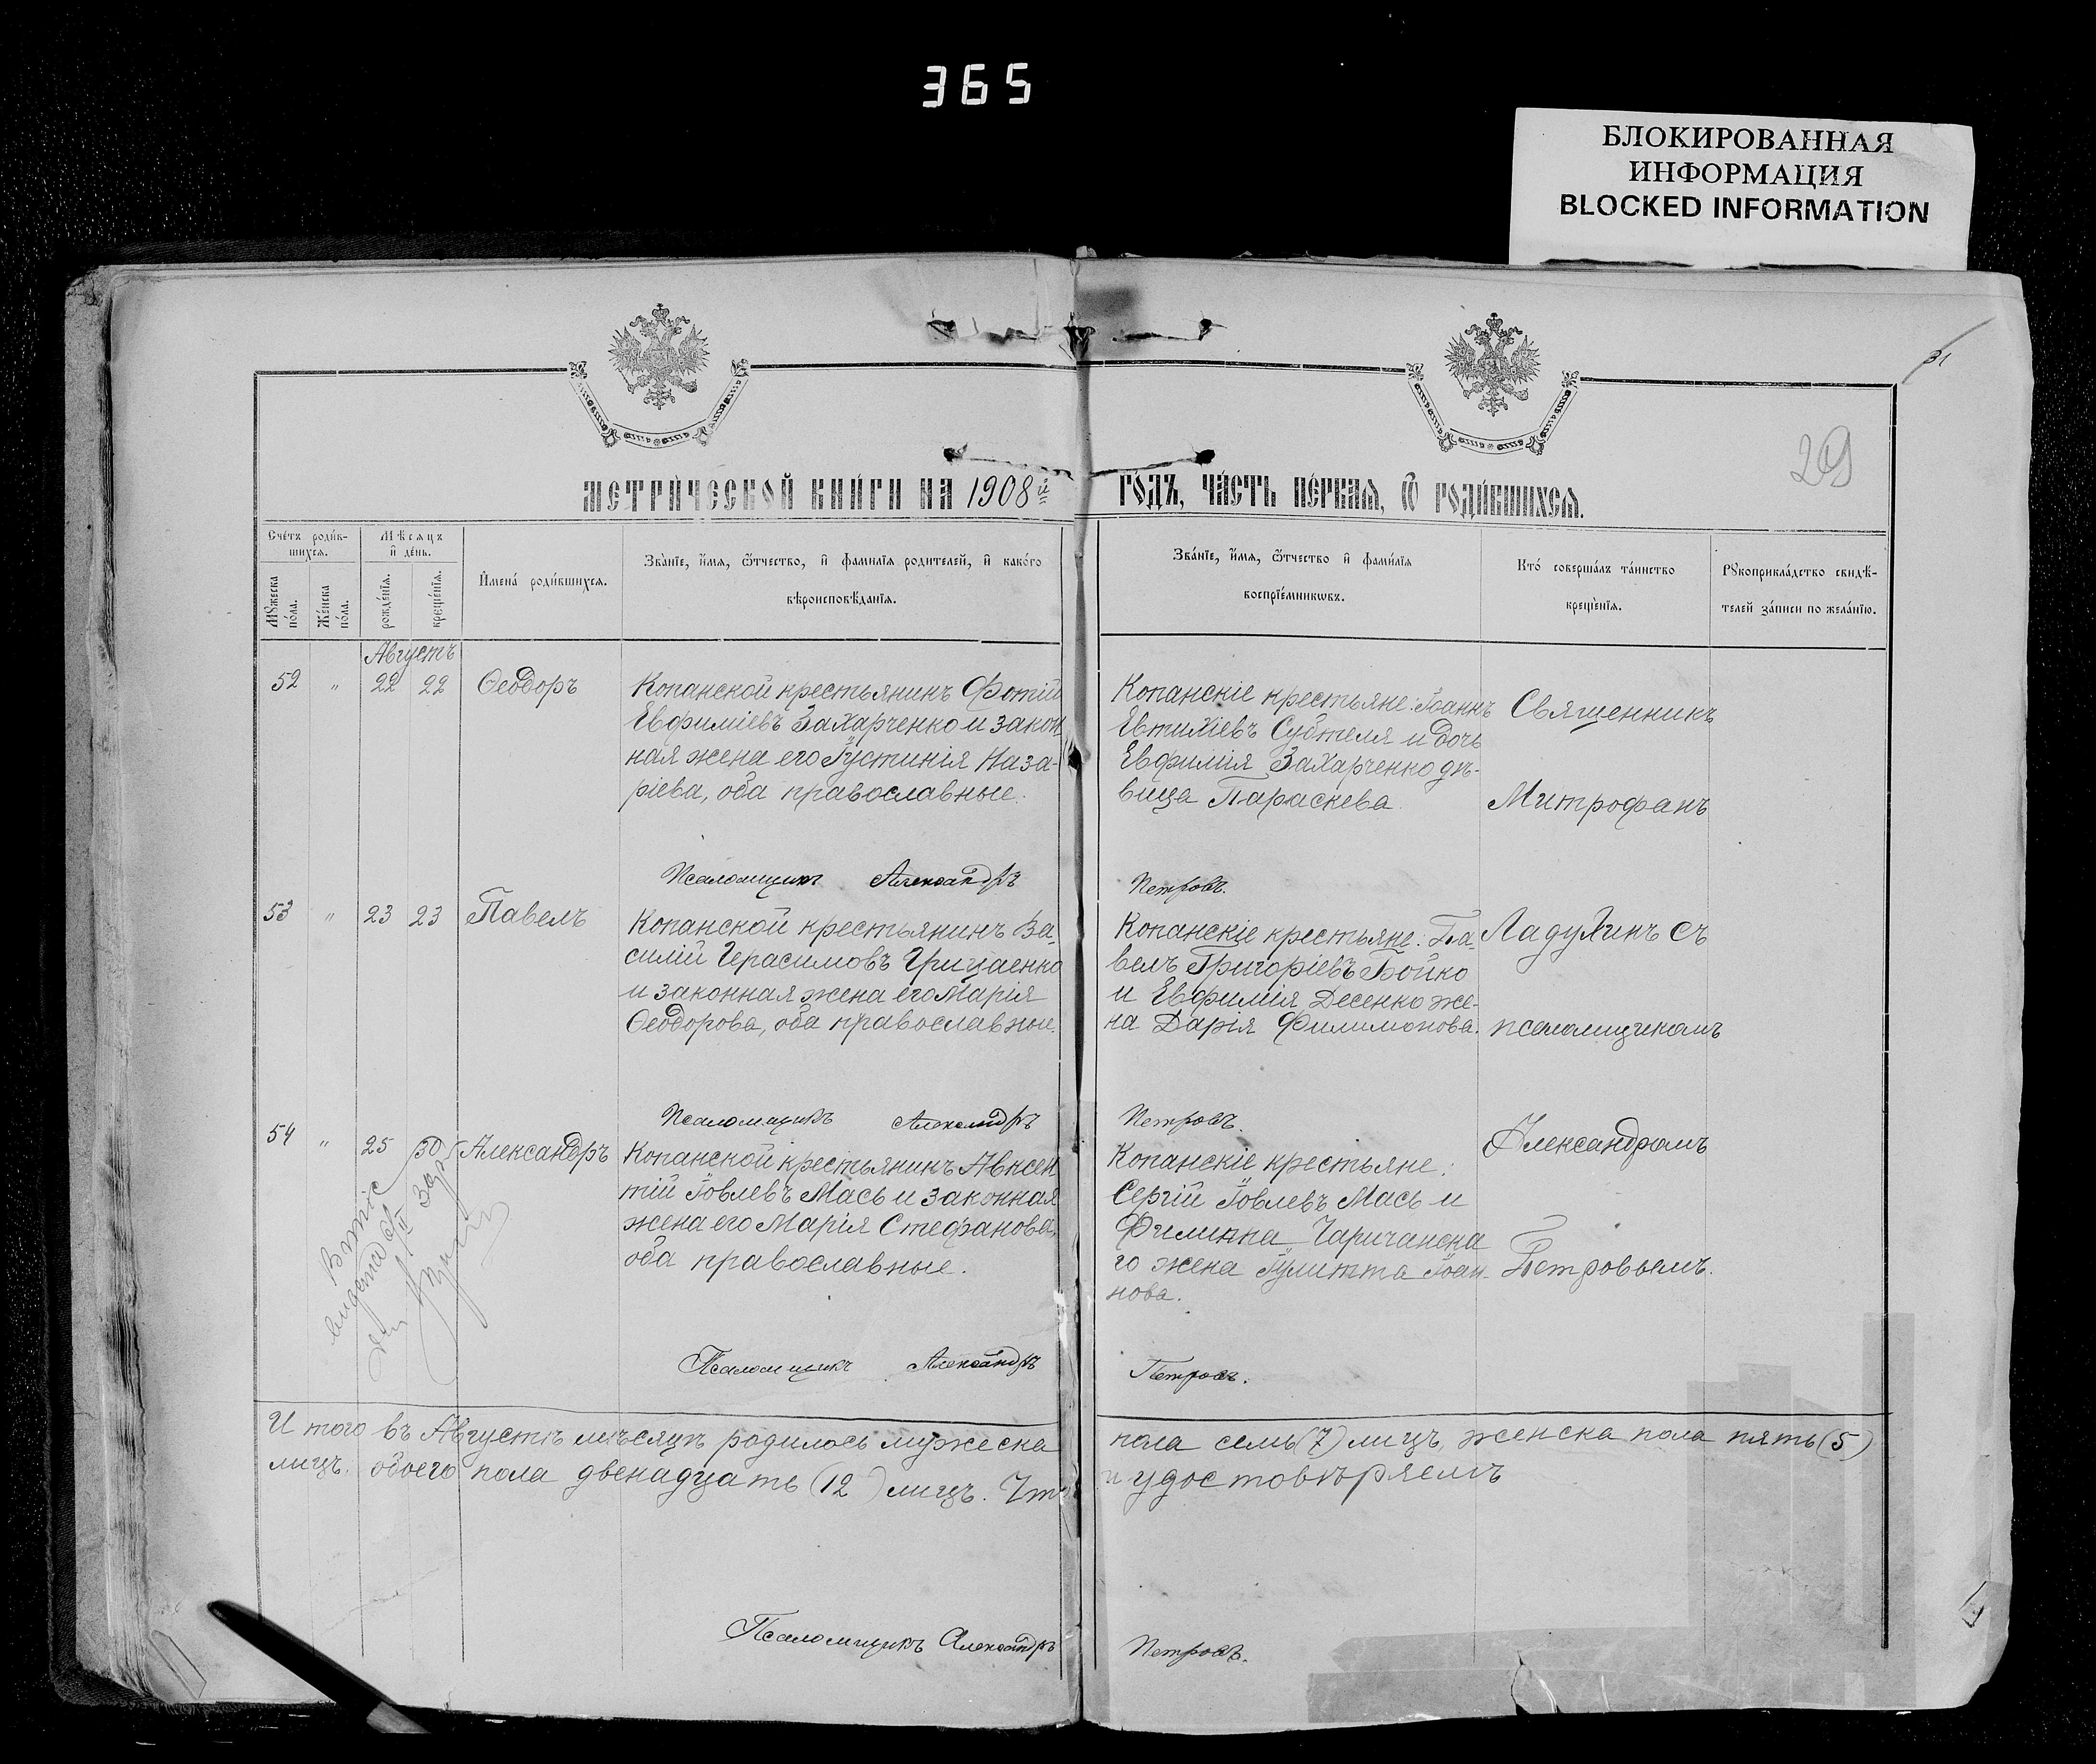 365
БЛОКИРОВАННАЯ
ИНФОРМАЦИЯ
BLOCKED INFORMATION
31
29
МЕТРИ́ЧЕСКОЙ КНИ́ГИ НА 1908й
ГО́ДЪ, ЧА́СТЬ ПЕ́РВАЯ, Ѿ РОДИ́ВШИХСЯ.
Сче́тъ роди́в-
шихся.
Мѣ́сяцъ
и҆ де́нь.
Мꙋ́жеска
по́ла.
Же́нска
по́ла.
рожде́нїя.
креще́нїя.
И҆мена̀ роди́вшихся.
Зва́нїе, и҆́мя, ѻ҆́тчество, и҆ фами́лїя роди́телей, и҆ како́гѡ
вѣроисповѣ́данїя.
Зва́нїе, и҆́мя, ѻ҆́тчество и҆ фами́лїя
воспрїе́мникѡвъ.
Кто̀ соверша́лъ та́инство
креще́нїя.
Рꙋкоприкла́дство свидѣ́-
телей за́писи по жела́нїю.
Августъ
52 " 22 22 Ѳеодоръ
Копанской крестьянинъ Фотій
Евфиміевъ Захарченко и закон
ная жена его Іустинія Наза-
ріева, оба православные.
Копанскіе крестьяне: Іоаннъ
Евтихіевъ Субтеля и дочь
Евфимія Захарченко дѣ-
вица Параскева.
Священникъ
Митрофанъ
Псаломщикъ Александръ
Петровъ.
53 " 23 23 Павелъ
Копанской крестьянинъ Ва-
силій Герасимовъ Грицаенко
и законная жена его Марія
Ѳеодорова, оба православные.
Копанскіе крестьяне: Па-
велъ Григоріевъ Бойко
и Евфимія Десенко же-
на Дарія Филимонова.
Ладухинъ съ
псаломщикомъ
Псаломщикъ Александръ
Петровъ.
54 " 25 30 Александръ
Копанской крестьянинъ Авксен
тій Іовлевъ Мась и законная
жена его Марія Стефанова,
оба православные.
Копанскіе крестьяне:
Сергій Іовлевъ Мась и
Филиппа Чаричанска
го жена Іулитта Іоан-
нова.
Александромъ
Петровымъ.
Псаломщикъ Александръ
Петровъ.
И того въ Августѣ мѣсяцѣ родилось мужеска
пола семь (7) лицъ, женска пола пять (5)
лицъ. обоего пола двенадцать (12) лицъ. Что
и удостовѣряемъ
Псаломщикъ Александръ
Петровъ.